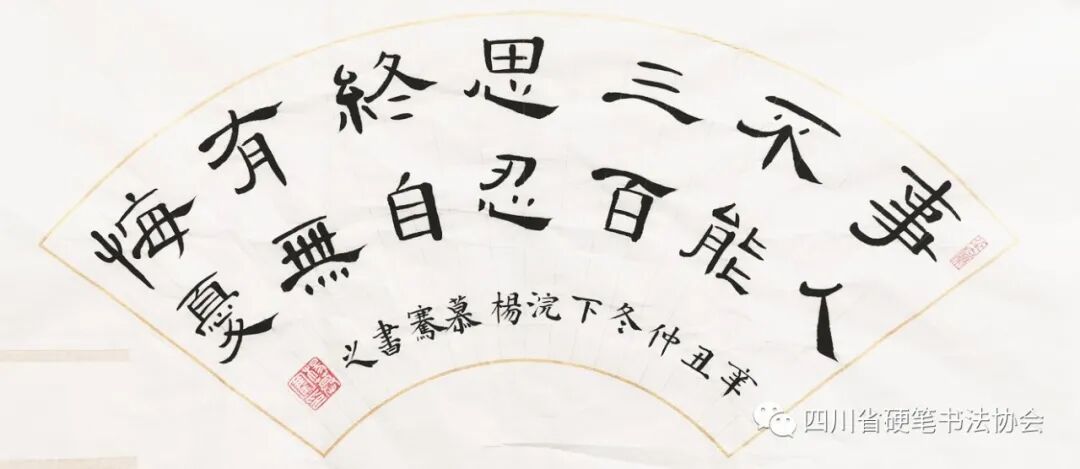 事不三思終有悔
人能百忍自無憂
辛丑仲冬下浣楊慕騫書之
四川省硬笔书法协会